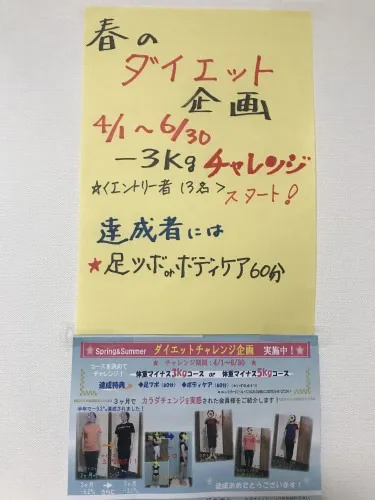 春の
ダイエット
企画
4/1～6/30
－3Kgチャレンジ
☆<エントリー者 13名>
スタート!
達成者には
★足ツボorボディケア60分
Spring&Summer ダイエットチャレンジ企画 実施中!
チャレンジ期間:4/1～6/30
コースを決めて
チャレンジ!
体重マイナス3Kgコース or 体重マイナス5Kgコース
達成特典 ◆足ツボ(60分) ◆ボディケア(60分)
3ヶ月で カラダチェンジを実感された会員様をご紹介します!
達成おめでとうございます!